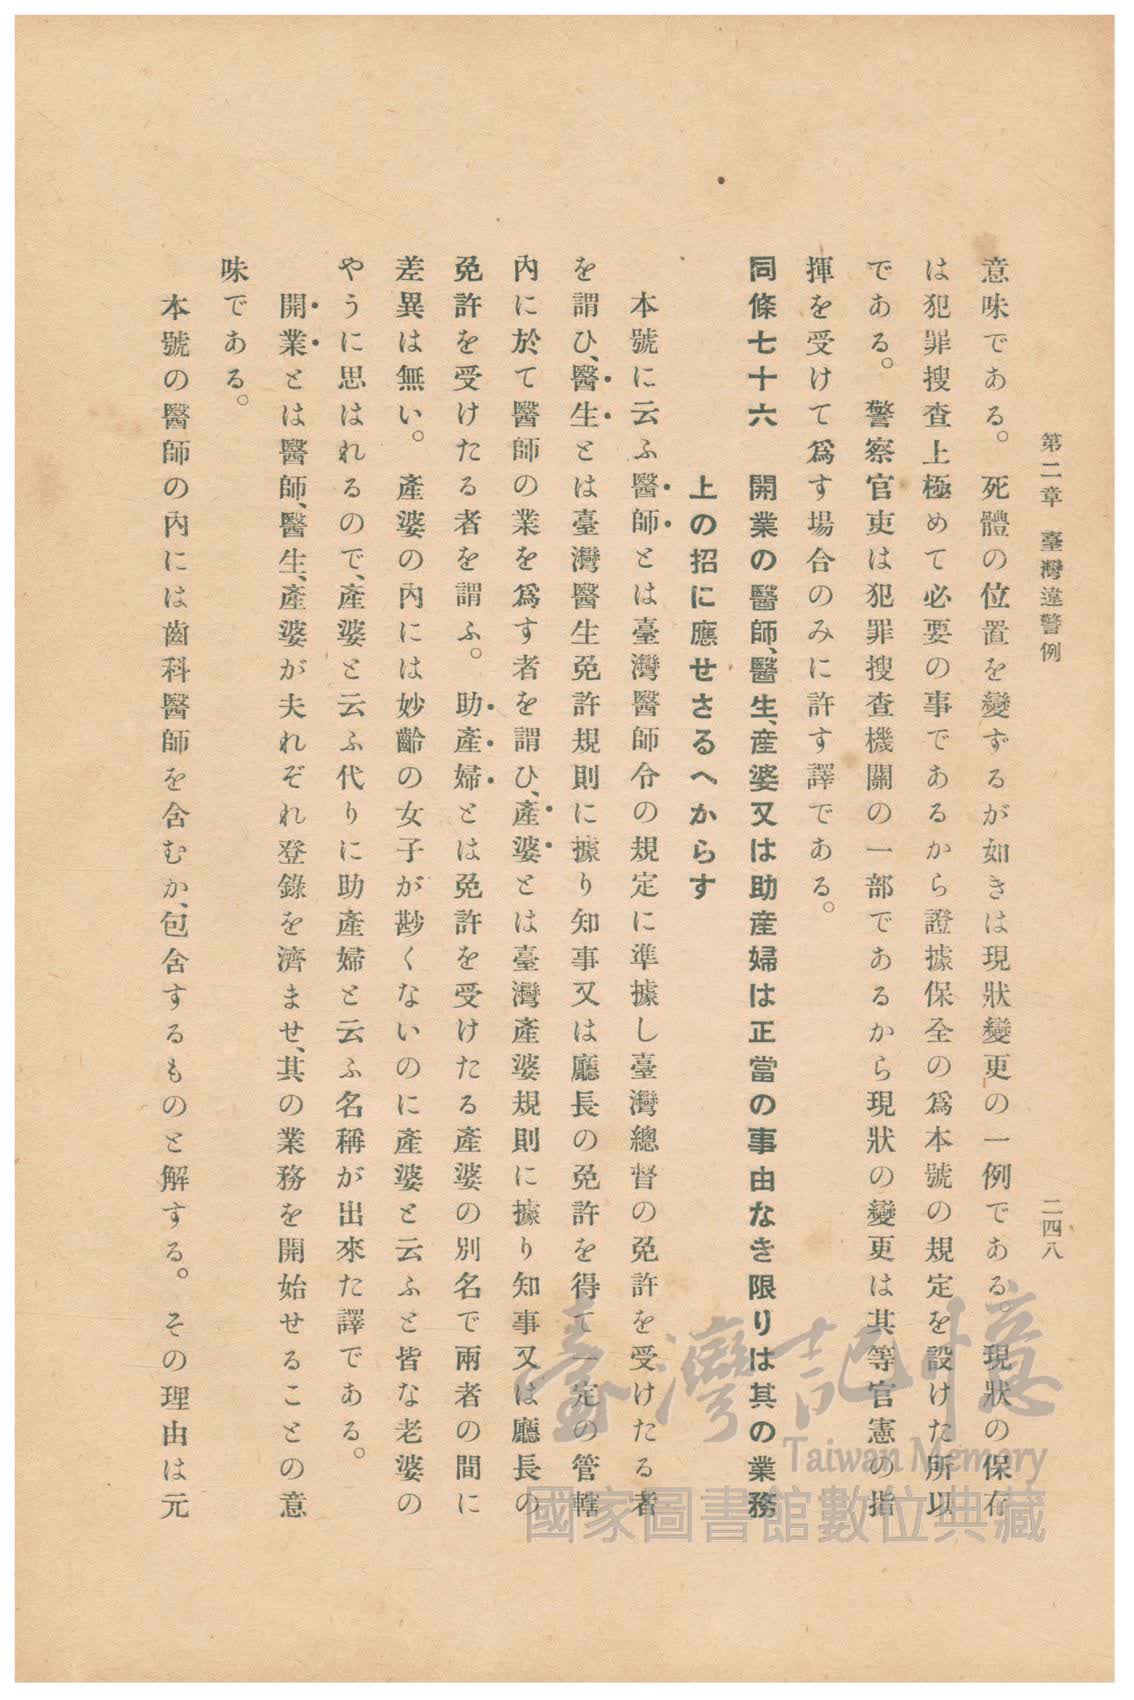 第二章　臺灣違警例
二四八
意味である。死體の位置を變ずるが如きは現狀變更の一例である。現狀の保存
は犯罪搜查上極めて必要の事であるから證據保全の爲本號の規定を設けた所以
である。警察官吏は犯罪搜查機關の一部であるから現狀の變更は其等官憲の指
揮を受けて爲す場合のみに許す譯である。
同條七十六　開業の醫師、醫生、產婆又は助產婦は正當の事由なき限りは其の業務
上の招に應せさるへからす
本號に云ふ醫師とは臺灣醫師令の規定に準據し臺灣總督の免許を受けたる者
を謂ひ、醫生とは臺灣醫生免許規則に據り知事又は廳長の免許を得て一定の管轄
內に於て醫師の業を爲す者を謂ひ、產婆とは臺灣產婆規則に據り知事又は廳長の
免許を受けたる者を謂ふ。助產婦とは免許を受けたる產婆の別名で兩者の間に
差異は無い。產婆の內には妙齡の女子が尠くないのに產婆と云ふと皆な老婆の
やうに思はれるので、產婆と云ふ代りに助產婦と云ふ名稱が出來た譯である。
開業とは醫師、醫生、產婆が夫れぞれ登錄を濟ませ、其の業務を開始せることの意
味である。
本號の醫師の內には齒科醫師を含むか、包含するものと解する。その理由は元
臺灣記憶
Taiwan Memory
國家圖書館數位典藏